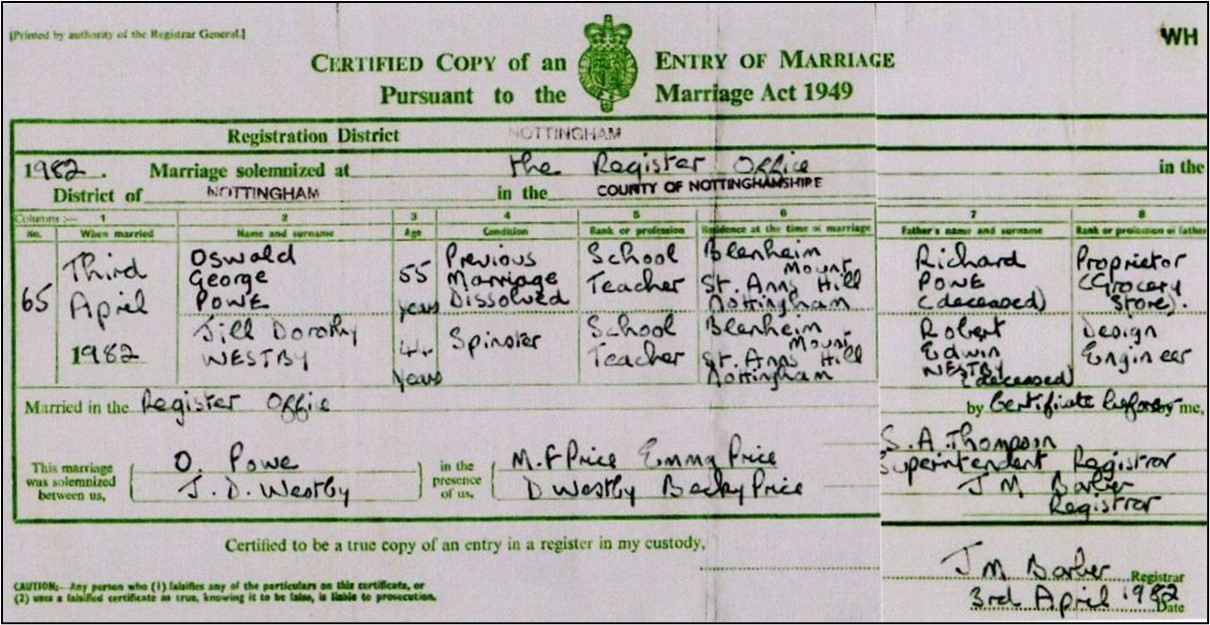 [Printed by authority of the Registrar General.]
WH
CERTIFIED COPY of an ENTRY OF MARRIAGE
Pursuant to the Marriage Act 1949
Registration District NOTTINGHAM
1982. Marriage solemnized at the Register Office in the
District of NOTTINGHAM in the COUNTY OF NOTTINGHAMSHIRE
Columns :— 1 2 3 4 5 6 7 8
No. When married Name and surname Age Condition Rank or profession Residence at the time of marriage Father's name and surname Rank or profession of father
65 Third April 1982 Oswald George POWE 55 years Previous Marriage Dissolved School Teacher Blenheim Mount St. Anns Hill Nottingham Richard POWE (deceased) Proprietor (Grocery Store).
Jill Dorothy WESTBY 44 years Spinster School Teacher Blenheim Mount St. Anns Hill Nottingham Robert Edwin WESTBY (deceased) Design Engineer
Married in the Register Office by Certificate before me,
This marriage was solemnized between us, O. Powe J. D. Westby in the presence of us, M.F Price Emma Price D Westby Becky Price
S. A. Thompson
Superintendent Registrar
J M Barber
Registrar
Certified to be a true copy of an entry in a register in my custody,
J M Barber Registrar
3rd April 1982 Date
CAUTION:— Any person who (1) falsifies any of the particulars on this certificate, or
(2) uses a falsified certificate as true, knowing it to be false, is liable to prosecution.